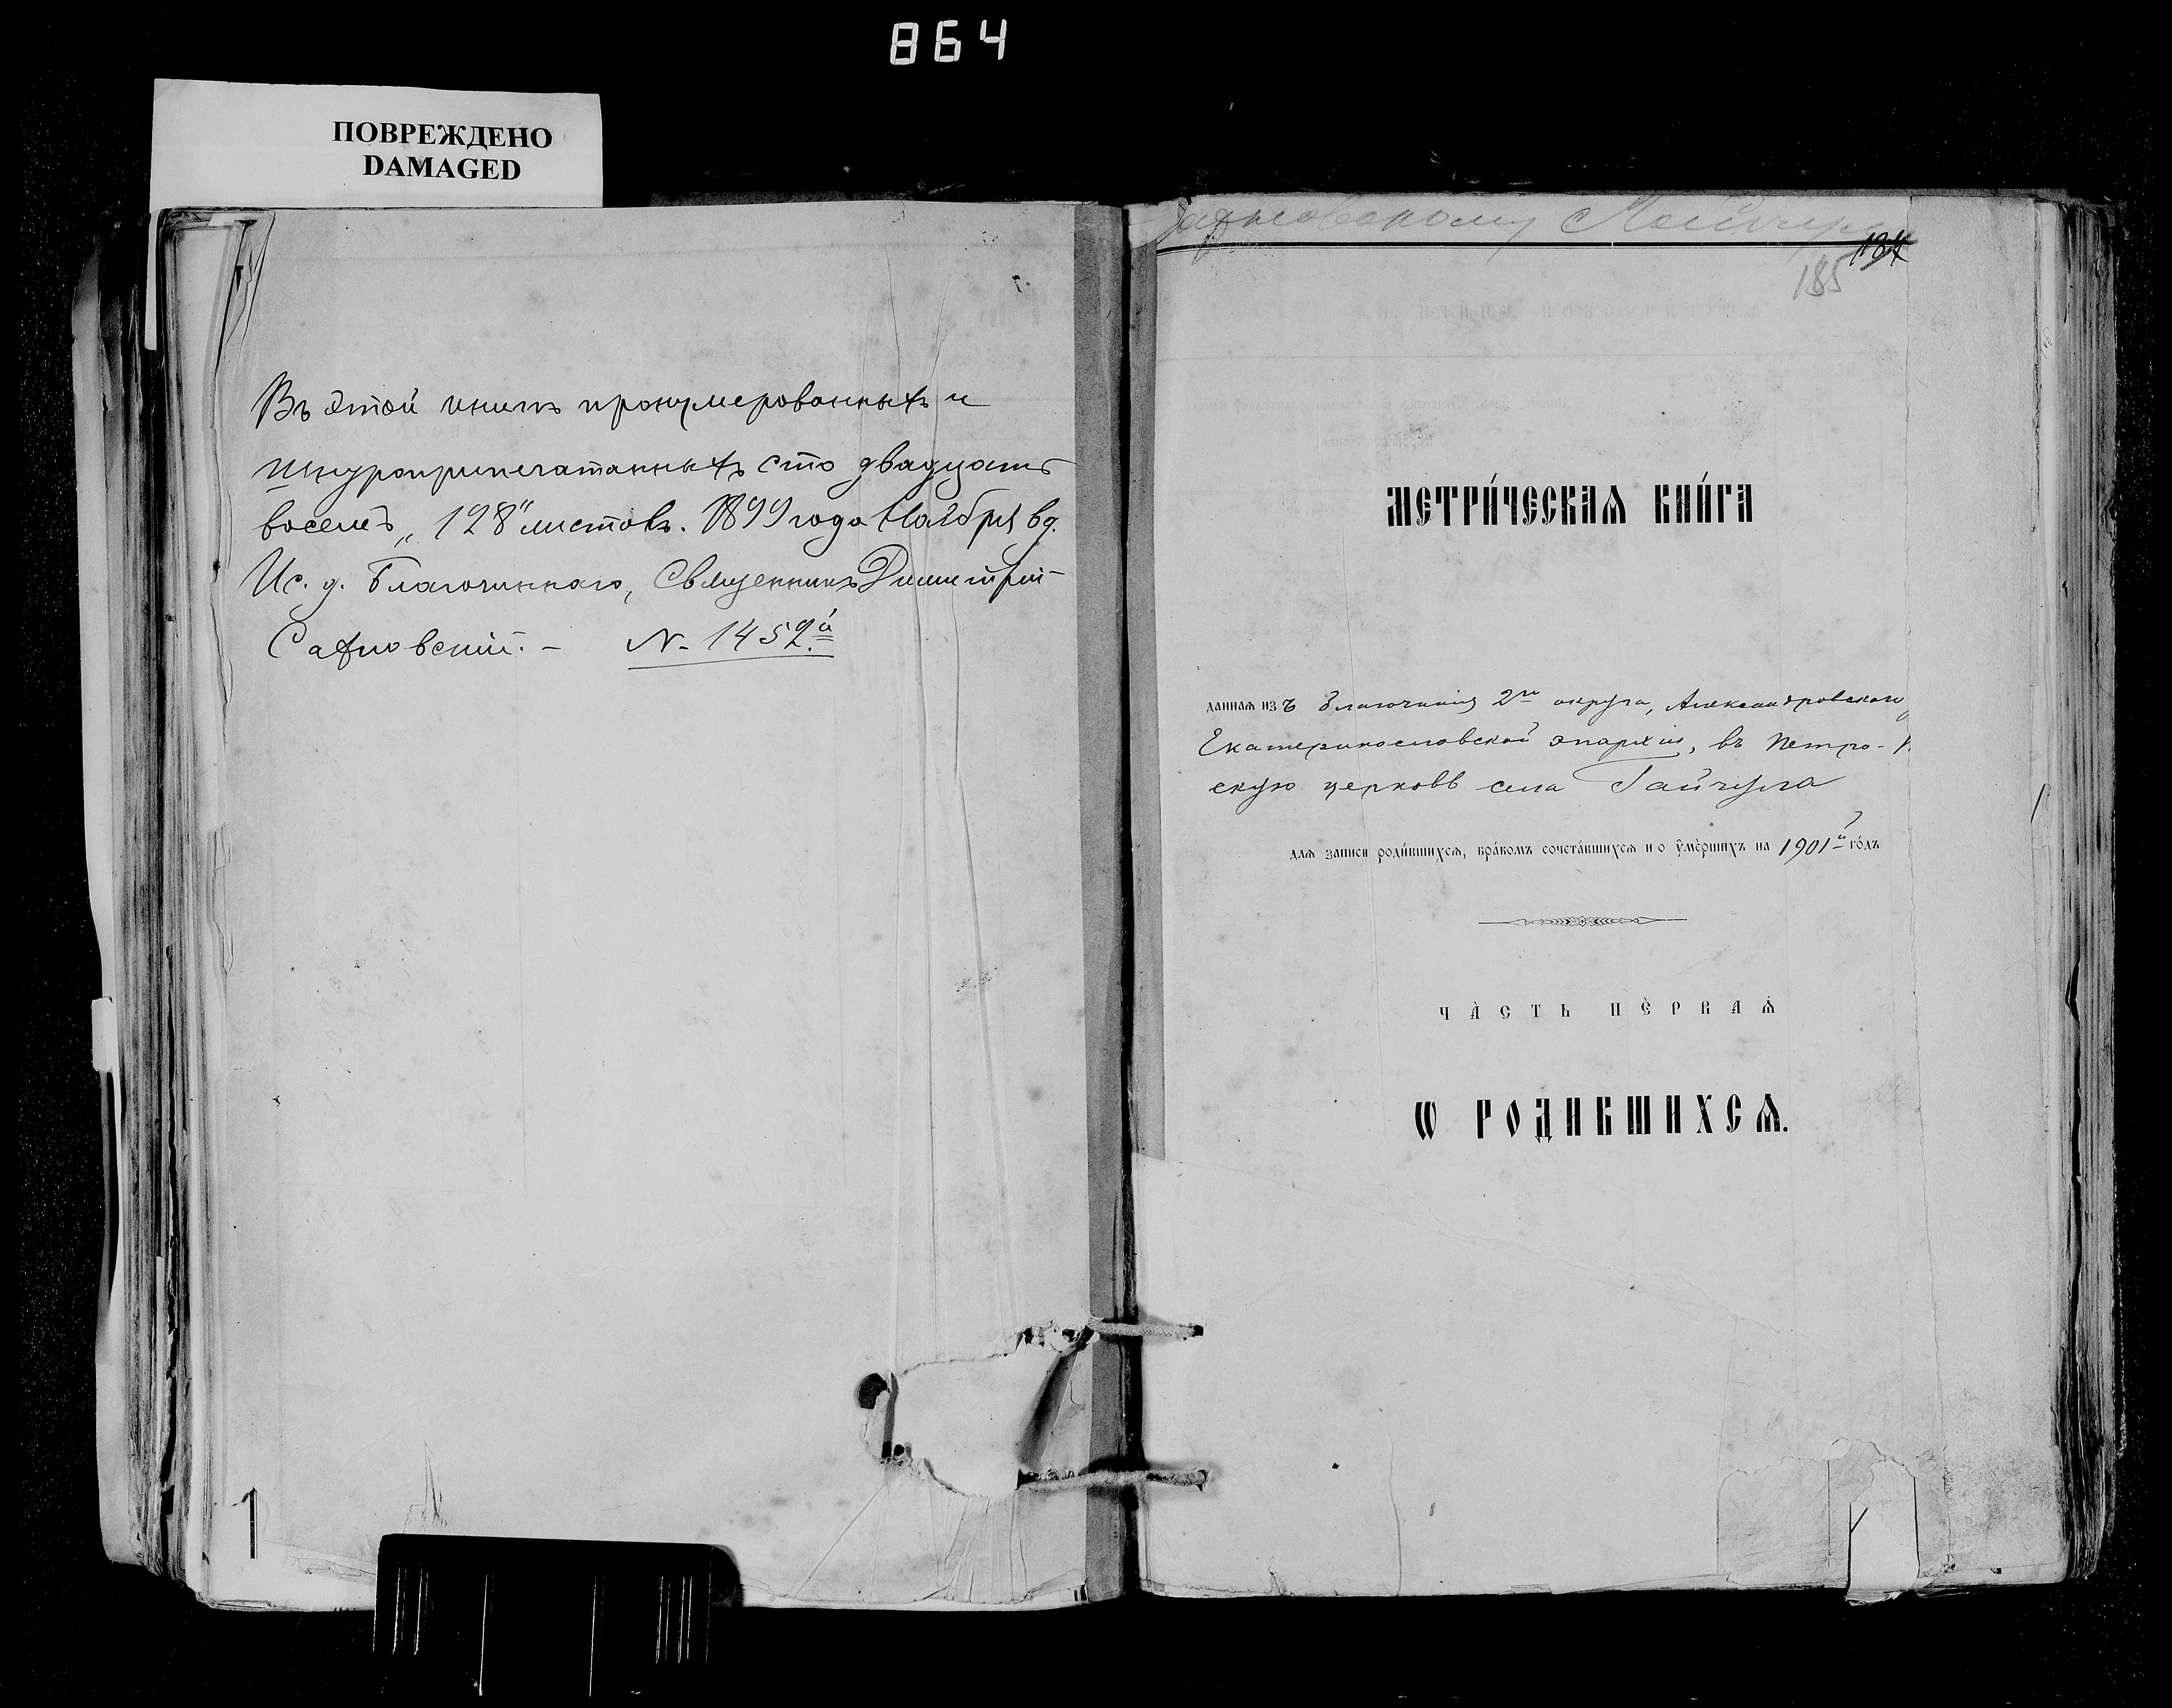 864
ПОВРЕЖДЕНО
DAMAGED
Въ этой книгѣ пронумерованныхъ и
шнуроприпечатанныхъ сто двадцать
восемь „128“ листовъ. 1899 года Ноября 6 д.
Ис. д. Благочиннаго, Священникъ Димитрій
Сахновскій. – N. 1452й
184
185
МЕТРИ́ЧЕСКАѦ КНИ́ГА
даннаѧ изъ Благочинія 2го округа, Александровскаго
Екатеринославской эпархіи, въ Петро-
скую церковь села Гайчула
длѧ записи роди́вшихсѧ, бра́комъ сочета́вшихсѧ и о ѹме́ршихъ на 1901й го́дъ
ЧА̀СТЬ ПЀРВАѦ
Ѡ РОДИВШИХСѦ.
1